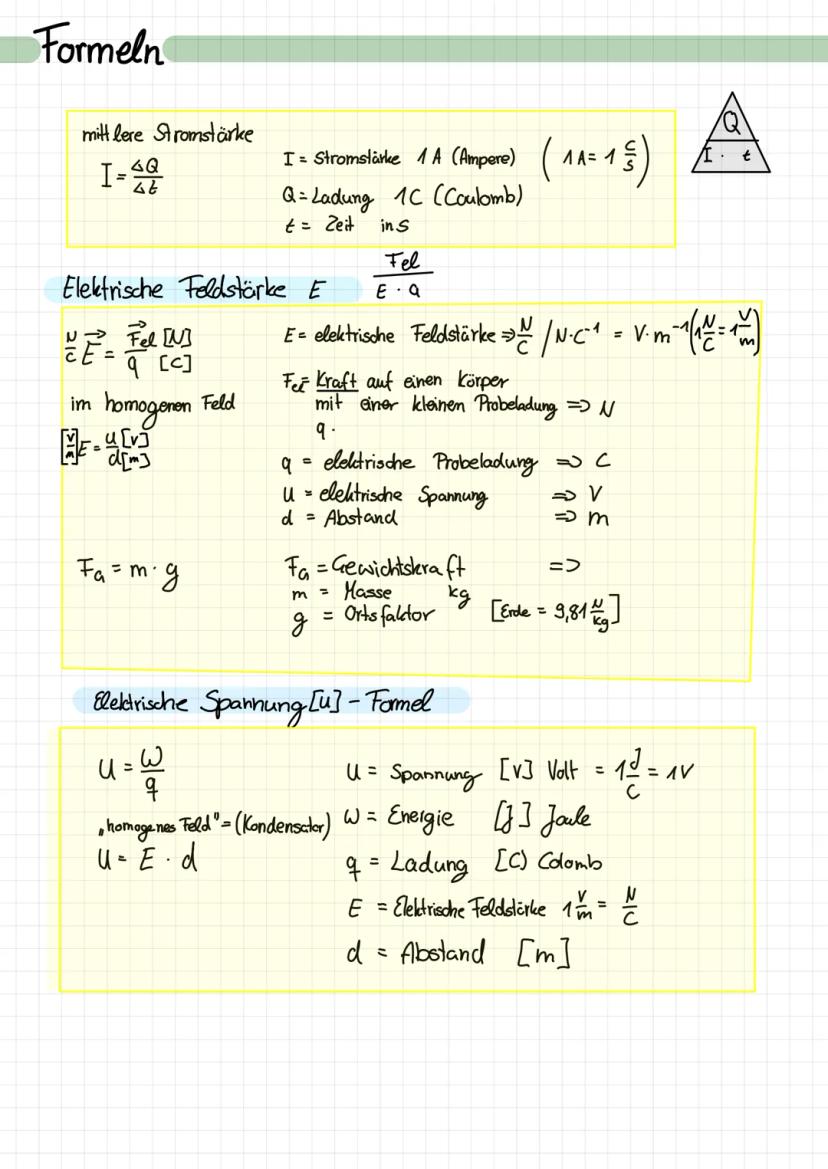 Formeln
mittlere Stromstärke
I = ΔQ/Δt
I = Stromstärke 1 A (Ampere) (1A = 1 C/s)
Q = Ladung 1C (Coulomb)
t = Zeit in s
Q
I · t
Elektrische Feldstärke E
Fel / E · q
N/C E⃗ = F⃗el [N] / q [C]
E = elektrische Feldstärke ⇒ N/C / N·C⁻¹ = V·m⁻¹ (1 N/C = 1 V/m)
im homogenen Feld
[V/m] E = U [V] / d [m]
Fel = Kraft auf einen Körper
mit einer kleinen Probeladung ⇒ N
q.
q = elektrische Probeladung ⇒ C
U = elektrische Spannung ⇒ V
d = Abstand ⇒ m
FG = m · g
FG = Gewichtskraft ⇒
m = Masse kg
g = Ortsfaktor [Erde = 9,81 N/kg]
Elektrische Spannung [U] - Formel
U = W/q
„homogenes Feld" = (Kondensator)
U = E · d
U = Spannung [V] Volt = 1 J/C = 1V
W = Energie [J] Joule
q = Ladung [C) Colomb
E = Elektrische Feldstärke 1 V/m = N/C
d = Abstand [m]